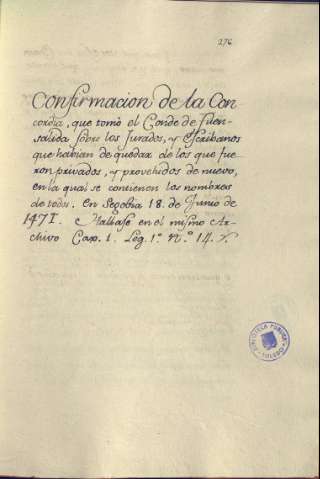 276
Confirmacion de la Con
cordia, que tomò el Conde de Fuen-
salida sobre los Jurados, y Escribanos
que habian de quedar de los que fue
ron privados, y provehidos de nuevo,
en la qual se contienen los nombres
de todos. En Segobia 18. de Junio de
1471. Hallase en el mismo Ar-
chivo Cax. 1. Leg. 1.º N.º 14.
BIBLIOTECA PUBLICA
TOLEDO